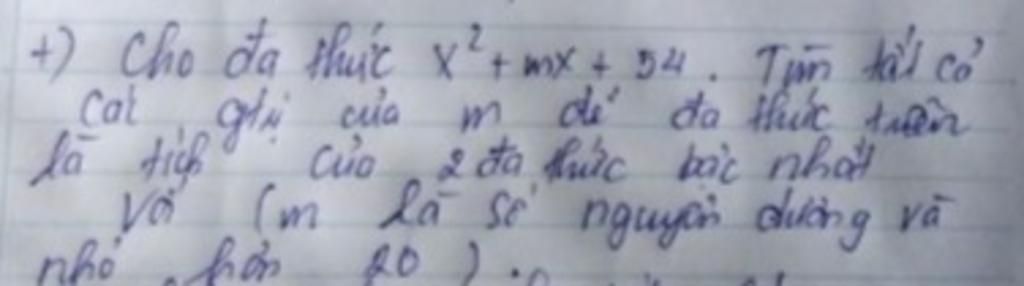 +) Cho đa thức x² + mx + 54. Tìm tất cả
các gtrị của m để đa thức trên
là tích của 2 đa thức bậc nhất
Với (m là số nguyên dương và
nhỏ hơn 20).